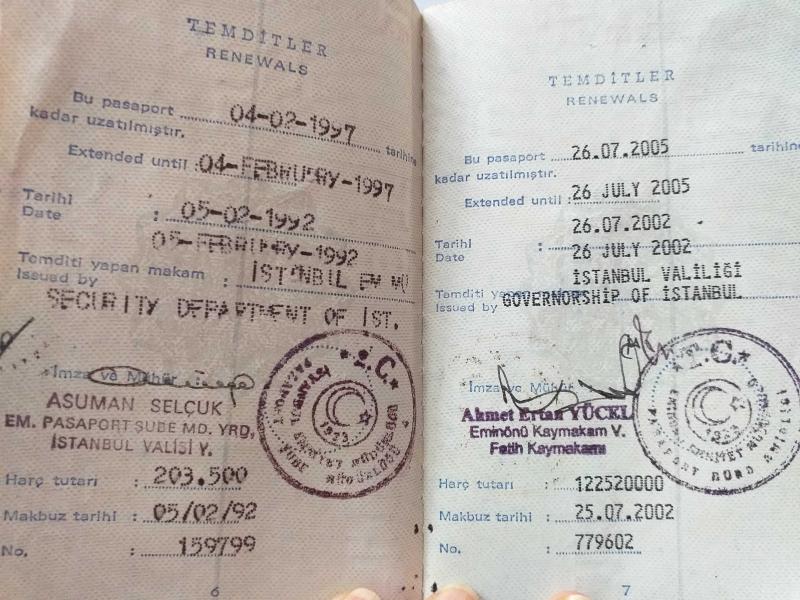 TEMDİTLER
RENEWALS
Bu pasaport 04-02-1997 tarihine
kadar uzatılmıştır.
Extended until : 04-FEBRUARY-1997
Tarihi
Date : 05-02-1992
05-FEBRUARY-1992
Temditi yapan makam : İSTANBUL EM MÜ
Issued by
SECURITY DEPARTMENT OF IST.
İmza ve Mühür
ASUMAN SELÇUK
EM. PASAPORT ŞUBE MD. YRD.
İSTANBUL VALİSİ Y.
T.C.
1923
Harç tutarı : 203.500
Makbuz tarihi : 05/02/92
No. : 159799
6
TEMDİTLER
RENEWALS
Bu pasaport 26.07.2005 tarihine
kadar uzatılmıştır.
Extended until : 26 JULY 2005
26.07.2002
Tarihi
Date : 26 JULY 2002
İSTANBUL VALİLİĞİ
Temditi yapan
Issued by GOVERNORSHIP OF İSTANBUL
İmza ve Mühür
Ahmet Ertan YÜCEL
Eminönü Kaymakam V.
Fatih Kaymakamı
T.C.
1923
Harç tutarı : 122520000
Makbuz tarihi : 25.07.2002
No. : 779602
7